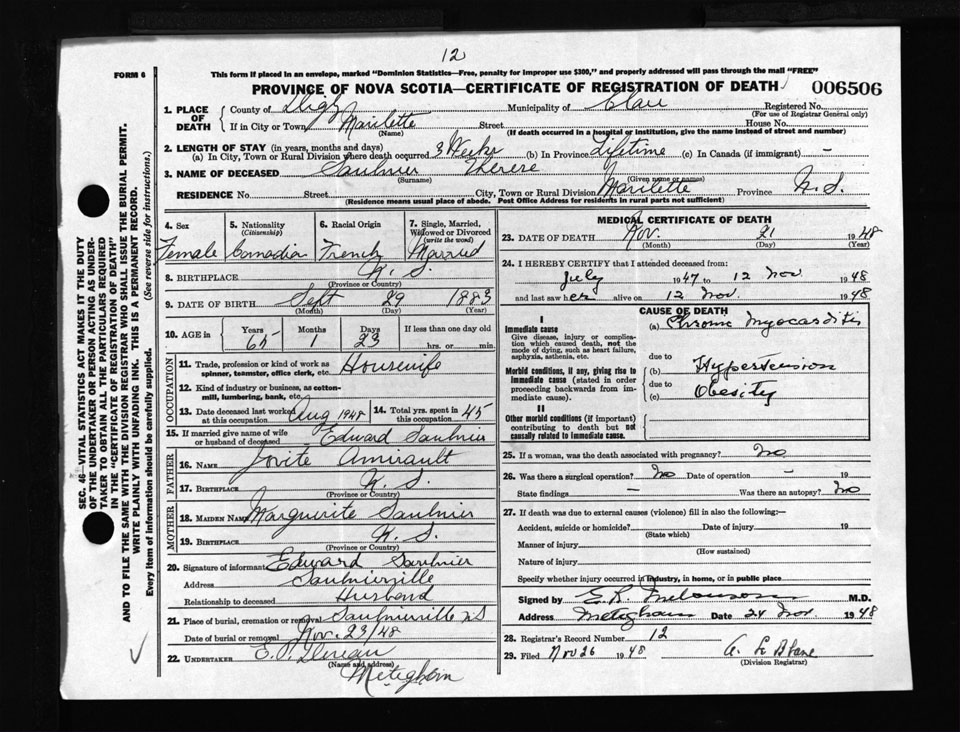 12
FORM 6
This form if placed in an envelope, marked "Dominion Statistics—Free, penalty for improper use $300," and properly addressed will pass through the mail "FREE"
PROVINCE OF NOVA SCOTIA—CERTIFICATE OF REGISTRATION OF DEATH
006506
1. PLACE OF DEATH
County of Digby Municipality of Clare Registered No.
(For use of Registrar General only)
If in City or Town Marilette Street House No.
(Name) (If death occurred in a hospital or institution, give the name instead of street and number)
2. LENGTH OF STAY (in years, months and days)
(a) In City, Town or Rural Division where death occurred 3 Weeks (b) In Province Lifetime (c) In Canada (if immigrant) —
3. NAME OF DECEASED Saulnier Therese
(Surname) (Given name or names)
RESIDENCE No. Street City, Town or Rural Division Marilette Province N.S.
(Residence means usual place of abode. Post Office Address for residents in rural parts not sufficient)
4. Sex
Female
5. Nationality
(Citizenship)
Canadian
6. Racial Origin
French
7. Single, Married, Widowed or Divorced
(write the word)
Married
8. BIRTHPLACE N. S.
(Province or Country)
9. DATE OF BIRTH Sept 29 1883
(Month) (Day) (Year)
10. AGE in Years Months Days If less than one day old
65 1 23 hrs. or min.
OCCUPATION
11. Trade, profession or kind of work as spinner, teamster, office clerk, etc. Housewife
12. Kind of industry or business, as cotton-mill, lumbering, bank, etc.
13. Date deceased last worked at this occupation Aug 1948
14. Total yrs. spent in this occupation 45
15. If married give name of wife or husband of deceased Edward Saulnier
FATHER
16. NAME Jovite Amirault
17. BIRTHPLACE N. S.
(Province or Country)
MOTHER
18. MAIDEN NAME Marguerite Saulnier
19. BIRTHPLACE N. S.
(Province or Country)
20. Signature of informant Edward Saulnier
Address Saulnierville
Relationship to deceased Husband
21. Place of burial, cremation or removal Saulnierville N S
Date of burial or removal Nov. 23/48
22. UNDERTAKER E. P.
(Name and address)
Meteghan
MEDICAL CERTIFICATE OF DEATH
23. DATE OF DEATH Nov. 21 1948
(Month) (Day) (Year)
24. I HEREBY CERTIFY that I attended deceased from:
July 1947 to 12 Nov 1948
and last saw her alive on 12 Nov. 1948
CAUSE OF DEATH
I
Immediate cause
Give disease, injury or complication which caused death, not the mode of dying, such as heart failure, asphyxia, asthenia, etc.
(a) Chronic Myocarditis
due to
Morbid conditions, if any, giving rise to immediate cause (stated in order proceeding backwards from immediate cause).
(b) Hypertension
due to
(c) Obesity
II
Other morbid conditions (if important) contributing to death but not causally related to immediate cause.
25. If a woman, was the death associated with pregnancy? No
26. Was there a surgical operation? No Date of operation — 19
State findings — Was there an autopsy? No
27. If death was due to external causes (violence) fill in also the following:—
Accident, suicide or homicide? Date of injury 19
(State which)
Manner of injury
(How sustained)
Nature of injury
Specify whether injury occurred in industry, in home, or in public place
Signed by E. R. M.D.
Address Meteghan Date 24 Nov. 1948
28. Registrar's Record Number 12
29. Filed Nov 26 1948 A. E. Blane
(Division Registrar)
SEC. 46 "VITAL STATISTICS ACT MAKES IT THE DUTY
OF THE UNDERTAKER OR PERSON ACTING AS UNDER-
TAKER TO OBTAIN ALL THE PARTICULARS REQUIRED
IN THE "CERTIFICATE OF REGISTRATION OF DEATH"
AND TO FILE THE SAME WITH THE DIVISION REGISTRAR WHO SHALL ISSUE THE BURIAL PERMIT.
WRITE PLAINLY WITH UNFADING INK. THIS IS A PERMANENT RECORD.
Every item of information should be carefully supplied. (See reverse side for instructions.)